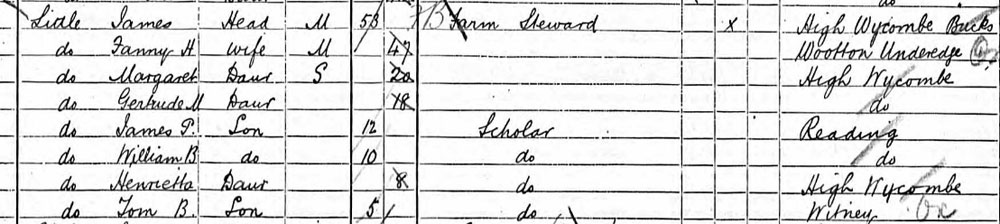 Sidle James Head M 53 Farm Steward x High Wycombe Bucks
do Fanny H wife M 47 Wootton Underedge
do Margaret Daur S 20 High Wycombe
do Gertrude M Daur 18 do
do James P. Son 12 Scholar Reading
do William B do 10 do do
do Henrietta Daur 8 do High Wycombe
do Tom B. Son 5 do Witney Ox